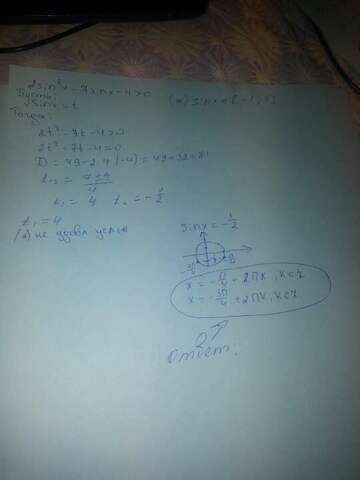 2sin²x - 7sinx - 4 > 0
(*) sinx ∈ [-1; 1]
Пусть:
sinx = t
Тогда:
2t² - 7t - 4 > 0
2t² - 7t - 4 = 0
D = 49 - 2·4·(-4) = 49 + 32 = 81
t₁,₂ = (7±9)/4
t₁ = 4 t₂ = -1/2
t₁ = 4
(*) не удовл услов
sinx = -1/2
x = -π/4 + 2πk, k ∈ Z
x = -3π/4 + 2πk, k ∈ Z
Ответ: